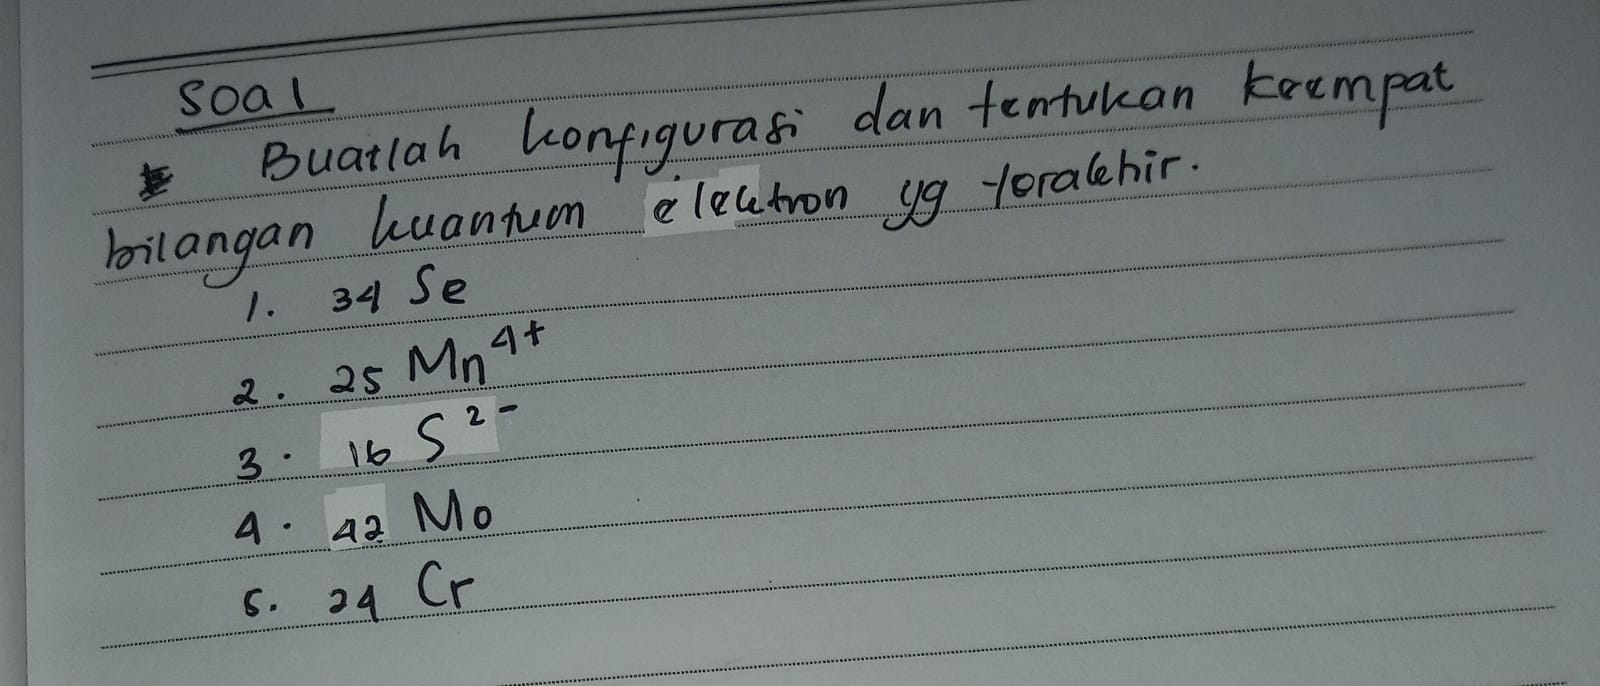 Soal
Buatlah konfigurasi dan tentukan keempat
bilangan kuantum elektron yg terakhir.
1. 34 Se
2. 25 Mn⁴⁺
3. 16 S²⁻
4. 42 Mo
5. 24 Cr